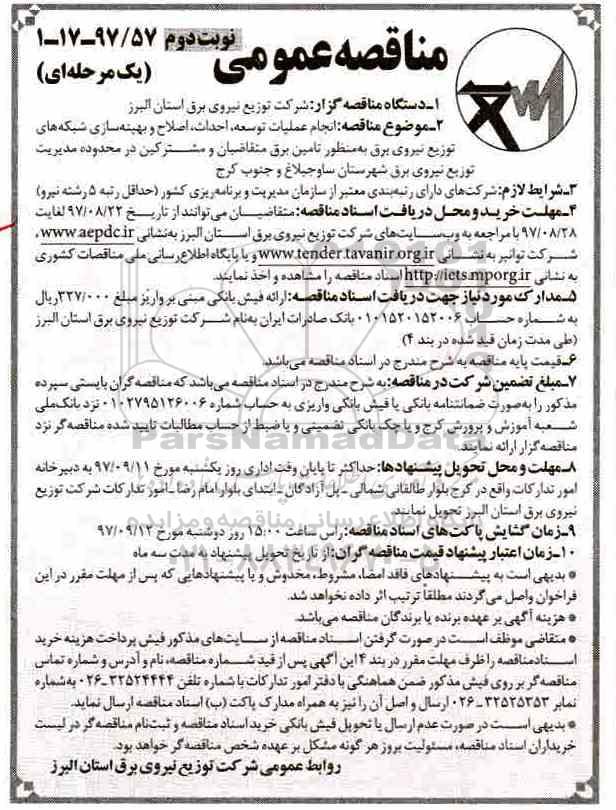 مناقصه عمومی نوبت دوم ۹۷/۵۷-۱۷-۱
(یک مرحله‌ای)
۱-دستگاه مناقصه گزار: شرکت توزیع نیروی برق استان البرز
۲-موضوع مناقصه: انجام عملیات توسعه، احداث، اصلاح و بهینه‌سازی شبکه‌های
توزیع نیروی برق به‌منظور تامین برق متقاضیان و مشترکین در محدوده مدیریت
توزیع نیروی برق شهرستان ساوجبلاغ و جنوب کرج
۳-شرایط لازم: شرکت‌های دارای رتبه‌بندی معتبر از سازمان مدیریت و برنامه‌ریزی کشور (حداقل رتبه ۵ رشته نیرو)
۴-مهلت خرید و محل دریافت اسناد مناقصه: متقاضیان می‌توانند از تاریخ ۹۷/۰۸/۲۲ لغایت
۹۷/۰۸/۲۸ با مراجعه به وب‌سایت‌های شرکت توزیع نیروی برق استان البرز به‌نشانی www.aepdc.ir،
شرکت توانیر به نشانی www.tender.tavanir.org.ir و یا پایگاه اطلاع‌رسانی ملی مناقصات کشوری
به نشانی http://iets.mporg.ir اسناد مناقصه را مشاهده و اخذ نمایند.
۵-مدارک مورد نیاز جهت دریافت اسناد مناقصه: ارائه فیش بانکی مبنی بر واریز مبلغ ۳۲۷/۰۰۰ ریال
به شماره حساب ۰۱۰۱۵۲۰۱۵۲۰۰۶ بانک صادرات ایران به‌نام شرکت توزیع نیروی برق استان البرز
(طی مدت زمان قید شده در بند ۴)
۶-قیمت پایه مناقصه به شرح مندرج در اسناد مناقصه می‌باشد.
۷-مبلغ تضمین شرکت در مناقصه: به شرح مندرج در اسناد مناقصه می‌باشد که مناقصه گران بایستی سپرده
مذکور را به‌صورت ضمانتنامه بانکی یا فیش بانکی واریزی به حساب شماره ۰۱۰۲۷۹۵۱۲۶۰۰۶ نزد بانک‌ملی
شعبه آموزش و پرورش کرج و یا چک بانکی تضمینی و یا ضبط از حساب مطالبات تایید شده مناقصه‌گر نزد
مناقصه‌گزار ارائه نمایند.
۸-مهلت و محل تحویل پیشنهادها: حداکثر تا پایان وقت اداری روز یکشنبه مورخ ۹۷/۰۹/۱۱ به دبیرخانه
امور تدارکات واقع در کرج بلوار طالقانی شمالی - پل آزادگان - ابتدای بلوار امام رضا - امور تدارکات شرکت توزیع
نیروی برق استان البرز تحویل نمایند.
۹-زمان گشایش پاکت‌های اسناد مناقصه: راس ساعت ۱۵:۰۰ روز دوشنبه مورخ ۹۷/۰۹/۱۲
۱۰-زمان اعتبار پیشنهاد قیمت مناقصه گران: از تاریخ تحویل پیشنهاد به مدت سه ماه
* بدیهی است به پیشنهادهای فاقد امضا، مشروط، مخدوش و یا پیشنهادهایی که پس از مهلت مقرر در این
فراخوان واصل می‌گردند مطلقاً ترتیب اثر داده نخواهد شد.
* هزینه آگهی بر عهده برنده یا برندگان مناقصه می‌باشد.
* متقاضی موظف است در صورت گرفتن اسناد مناقصه از سایت‌های مذکور فیش پرداخت هزینه خرید
اسناد مناقصه را ظرف مهلت مقرر در بند ۴ این آگهی پس از قید شماره مناقصه، نام و آدرس و شماره تماس
مناقصه‌گر بر روی فیش مذکور ضمن هماهنگی با دفتر امور تدارکات با شماره تلفن ۳۲۵۲۴۴۴۴-۰۲۶ به‌شماره
نمابر ۳۲۵۲۵۳۵۳-۰۲۶ ارسال و اصل آن را نیز به همراه مدارک پاکت (ب) اسناد مناقصه ارسال نماید.
* بدیهی است در صورت عدم ارسال یا تحویل فیش بانکی خرید اسناد مناقصه و ثبت‌نام مناقصه‌گر در لیست
خریداران اسناد مناقصه، مسئولیت بروز هر گونه مشکل بر عهده شخص مناقصه‌گر خواهد بود.
روابط عمومی شرکت توزیع نیروی برق استان البرز
ParsNamadData